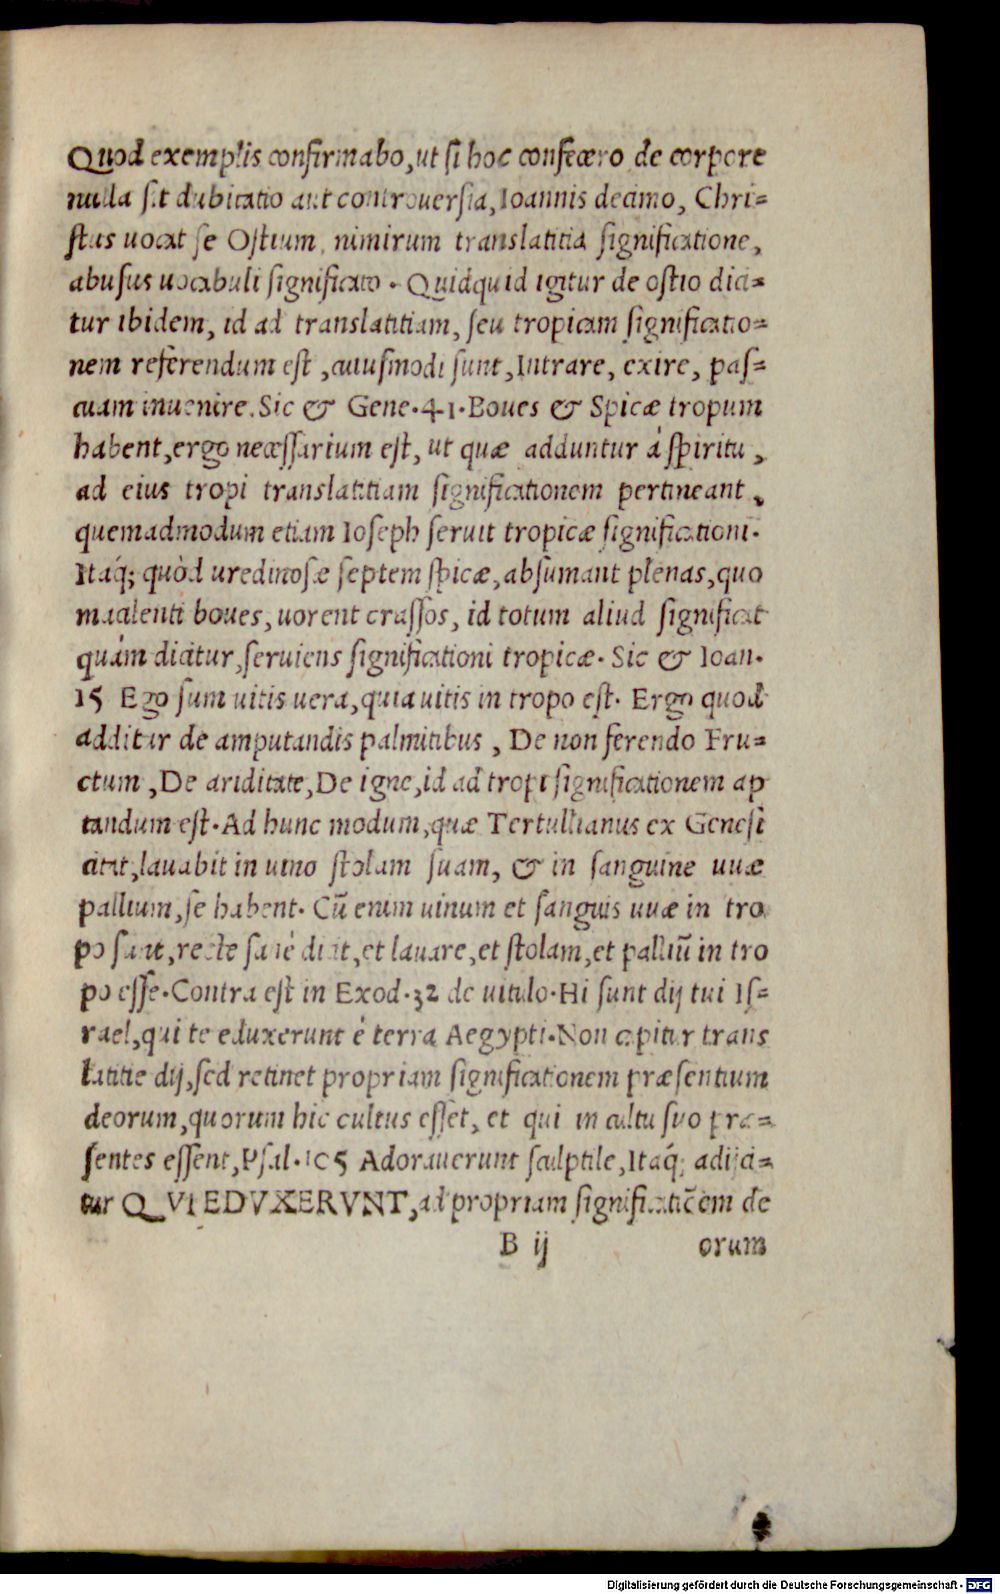 Quod exemplis confirmabo, ut ſi hoc confecero de corpore
nulla ſit dubitatio aut controuerſia, Ioannis decimo, Chri-
ſtus uocat ſe Oſtium nimirum translatitia ſignificatione,
abuſus uocabuli ſignificato. Quidquid igitur de oſtio dici-
tur ibidem, id ad translatitiam, ſeu tropicam ſignificatio-
nem referendum eſt, cuiuſmodi ſunt, Intrare, exire, paſ-
cuam inuenire. Sic & Gene. 41. Boues & Spicæ tropum
habent, ergo neceſſarium eſt, ut quæ adduntur á ſpiritu,
ad eius tropi translatitiam ſignificationem pertineant,
quemadmodum etiam Ioſeph ſeruit tropicæ ſignificationi.
Itaq́; quòd uredinoſæ ſeptem ſpicæ, abſumant plenas, quo
macilenti boues, uorent craſſos, id totum aliud ſignificat
quám dicitur, ſeruiens ſignificationi tropicæ. Sic & Ioan.
15 Ego ſum uitis uera, quia uitis in tropo eſt. Ergo quod
additur de amputandis palmitibus, De non ferendo Fru-
ctum, De ariditate, De igne, id ad tropi ſignificationem ap
tandum eſt. Ad hunc modum, quæ Tertullianus ex Geneſi
citat, lauabit in uino ſtolam ſuam, & in ſanguine uuæ
pallium, ſe habent. Cū enim uinum et ſanguis uuæ in tro
po ſunt, recte ſanè dicit, et lauare, et ſtolam, et palliū in tro
po eſſe. Contra eſt in Exod. 32 de uitulo. Hi ſunt dij tui Iſ-
rael, qui te eduxerunt è terra Aegypti. Non capitur trans
latitie dij, ſed retinet propriam ſignificationem præſentium
deorum, quorum hic cultus eſſet, et qui in cultu ſuo præ-
ſentes eſſent, Pſal. 105 Adorauerunt ſculptile, Itaq́; adijci-
tur QVI EDVXERVNT, ad propriam ſignificatiōem de
B ij orum
Digitalisierung gefördert durch die Deutsche Forschungsgemeinschaft - DFG